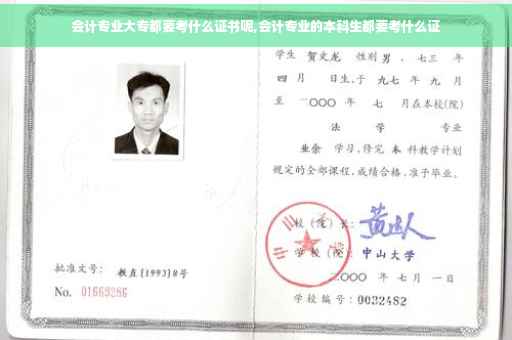 会计专业大专都要考什么证书呢,会计专业的本科生都要考什么证
学生 贺文龙 性别 男 、七三 年
四 月 日生,于 九七 年 九 月
至 二〇〇〇 年 七 月在本校(院)
法 学 专业
业余 学习,修完 本 科教学计划
规定的全部课程,成绩合格,准予毕业。
校(院)长:
学校(院): 中山大学
二〇〇〇 年 七 月 一 日
批准文号: 教直[1993]8号
No. 01669286
学校编号: 0032482